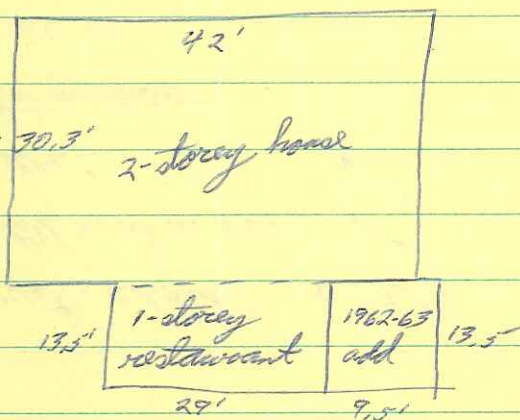 42'
30,3'
2-storey house
13,5'
1-storey
restaurant
1962-63
add
13,5
29'
9,5'